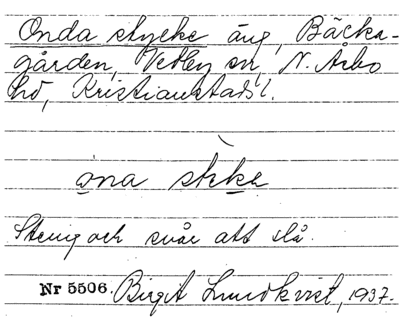 Onda stycke äng, Bäcka-
gården, Vedby sn, N. Åsbo
hd, Kristianstads l.
ona støke
Stenig och svår att slå.
Nr 5506. Birgit Lundkvist, 1937.